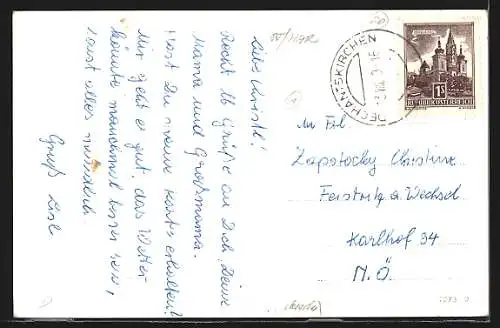 Liebe Christl!
Recht lb Grüße an Dich, Deine
Mama und Großmama.
Hast Du meine Karte erhalten?
Mir geht es gut, das Wetter
könnte manchmal besser sein,
sonst alles
Gruß Lisl
DECHANTSKIRCHEN
REPUBLIK ÖSTERREICH
1S
An Frl.
Zapotocky Christine
Feistritz a. Wechsel
Karlhof 34
N.Ö.